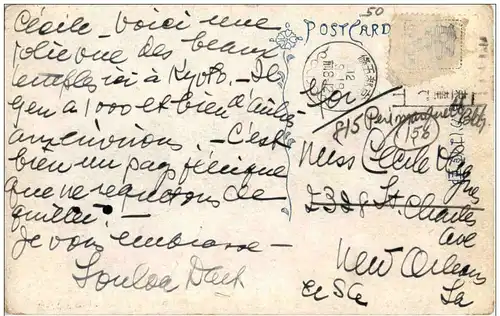 Cécile – voici une
jolie vue des beaux
temples ici à Kyoto. – Il
y en a 1000 et bien d'autres
aux environs. – C'est
bien un pays féerique
que ne regrettons de
quitter. –
Je vous embrasse –
POSTCARD
50
815 Perrimarquette Bldg.
156
Miss Cécile
2328 St. Charles
Ave
New Orleans
La